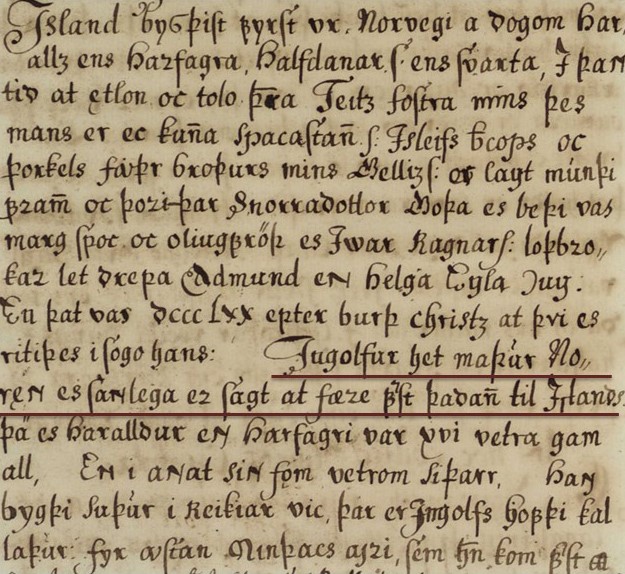 Island bygþist fyrst vr. Norvegi a dogom Har,
allz ens harfagra, halfdanar s. ens svarta, J þan
tid at ętlon oc tolo þra Teitz fostra mins þes
mans er ec kuña spacastañ s: Jsleifs bcops oc
þorkels favþr broþurs mins Gelliz s: er lagt munþi
fram̄ oc þoriþar Snorradottor Goþa es beþi vas
marg spoc oc oliugfroþ es Jwar Ragnars: loþbro,,
kar let drepa Eadmund en helga Engla
En þat vas dccc lxx epter burþ christz at þvi es
ritiþes i sogo hans: Jngolfur het maþur No,,
ren es sanlega er sagt at fære fst þadañ til Jslands
þa es haralldur en harfagri var xvi vetra gam
all, En i anat sin fom vetrom siþarr, han
bygþi suþur i Reikiar vic, þar er Jngolfs hofþi kal
laþur. fyr austan Minþacs ayri, sem hn kom fst a